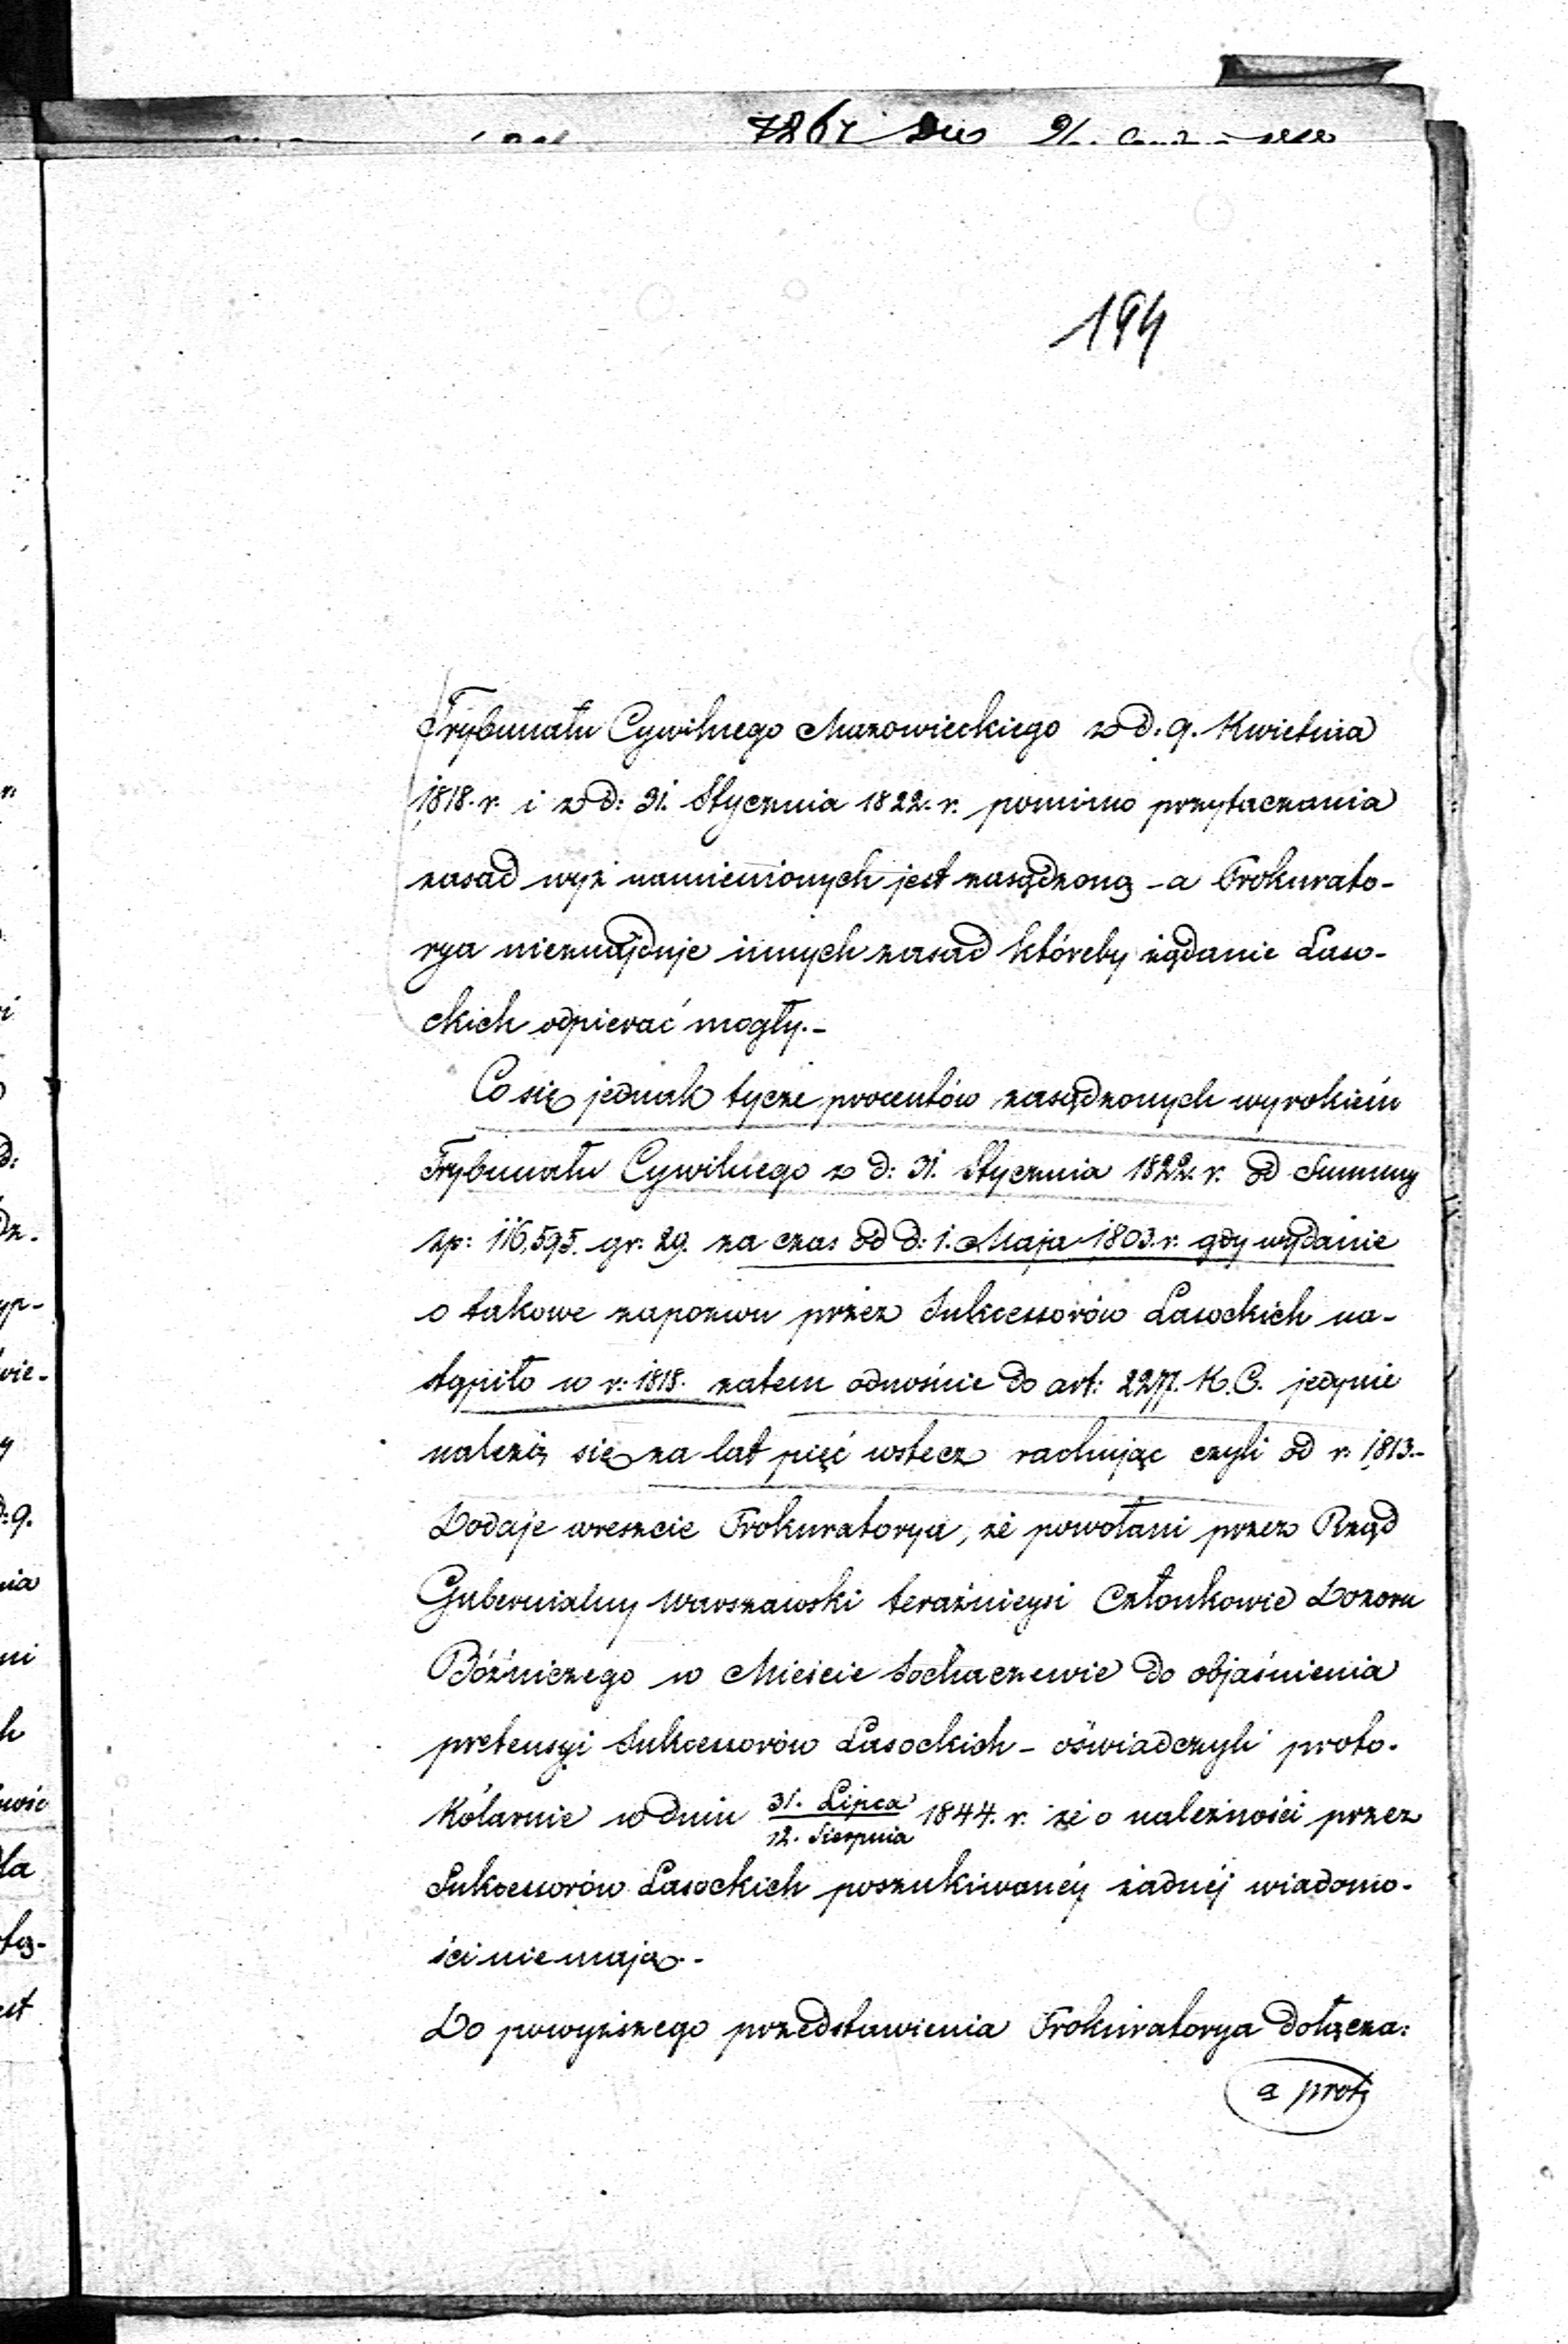 194
Trybunału Cywilnego Mazowieckiego z d. 9. Kwietnia
1818. r. i z d: 31. Stycznia 1822. r. pomimo przytaczania
zasad wyż namienionych jest zasądzoną - a Prokurato-
rya nieznajduje innych zasad któreby żądanie Laso-
ckich odpierać mogły.-
Co się jednak tycze procentów zasądzonych wyrokiem
Trybunału Cywilnego z d: 31. Stycznia 1822. r. od Summy
zp: 116,595. gr: 29. za czas od d: 1. Maja 1803. r. gdy wydanie
o takowe zapozwu przez Sukcessorów Lasockich na-
stąpiło w r: 1818. zatem odnośnie do art: 2277. K. C. jedynie
należą się za lat pięć wstecz rachując czyli od r. 1813.-
Dodaje wreszcie Prokuratorya, że powołani przez Rząd
Gubernialny Warszawski teraźnieysi Członkowie Dozoru
Bóźniczego w Mieście Sochaczewie do objaśnienia
pretensyi Sukcessorów Lasockich - oświadczyli proto-
kólarnie w dniu 31. Lipca / 12. Sierpnia 1844. r. że o należności przez
Sukcessorów Lasockich poszukiwanéy żadnéj wiadomo-
ści nie mają.-
Do powyższego przedstawienia Prokuratorya dołącza:
a prot;